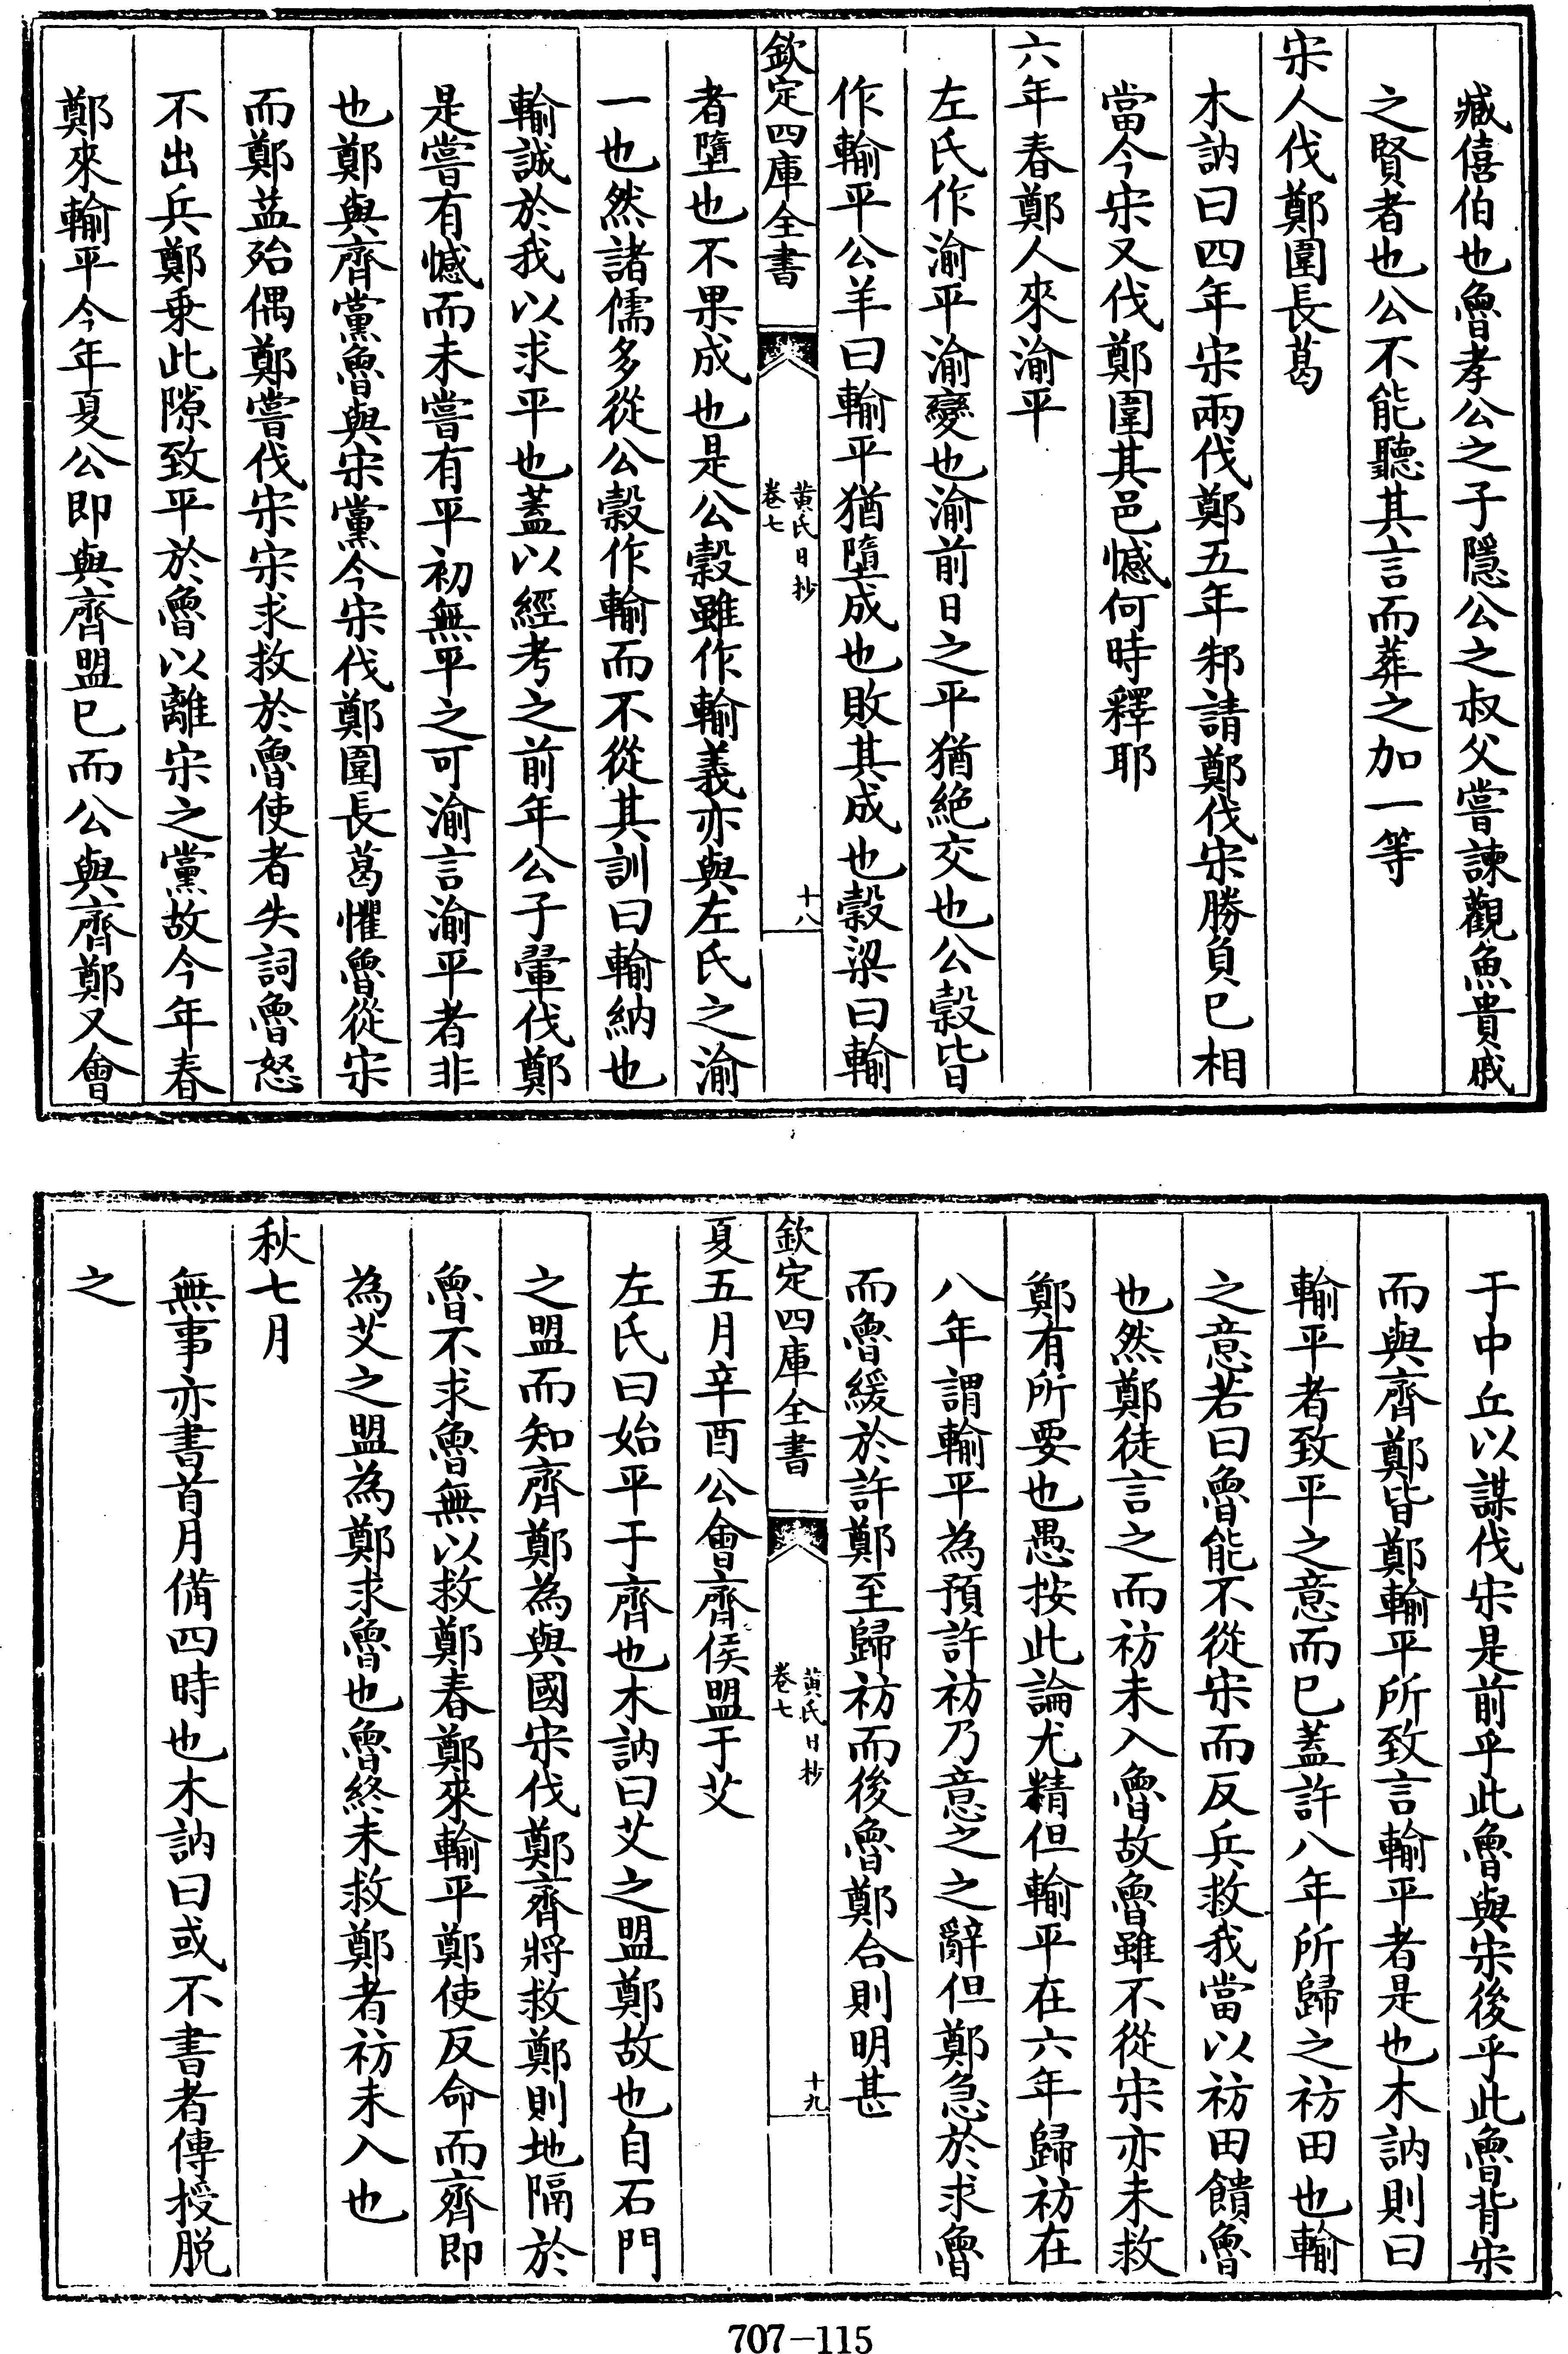 臧僖伯也魯孝公之子隱公之叔父嘗諫觀魚貴戚
之賢者也公不能聽其言而葬之加一等
宋人伐鄭圍長葛
木訥曰四年宋兩伐鄭五年邾請鄭伐宋勝負已相
當今宋又伐鄭圍其邑憾何時釋耶
六年春鄭人來渝平
左氏作渝平渝變也渝前日之平猶絶交也公穀皆
作輸平公羊曰輸平猶墮成也敗其成也穀梁曰輸
欽定四庫全書
黃氏日抄
卷七
十八
者墮也不果成也是公穀雖作輸義亦與左氏之渝
一也然諸儒多從公穀作輸而不從其訓曰輸納也
輸誠於我以求平也蓋以經考之前年公子翬伐鄭
是嘗有憾而未嘗有平初無平之可渝言渝平者非
也鄭與齊黨魯與宋黨今宋伐鄭圍長葛懼魯從宋
而鄭益殆偶鄭嘗伐宋宋求救於魯使者失詞魯怒
不出兵鄭乗此隙致平於魯以離宋之黨故今年春
鄭來輸平今年夏公即與齊盟已而公與齊鄭又會
于中丘以謀伐宋是前乎此魯與宋後乎此魯背宋
而與齊鄭皆鄭輸平所致言輸平者是也木訥則曰
輸平者致平之意而已蓋許八年所歸之祊田也輸
之意若曰魯能不從宋而反兵救我當以祊田饋魯
也然鄭徒言之而祊未入魯故魯雖不從宋亦未救
鄭有所要也愚按此論尤精但輸平在六年歸祊在
八年謂輸平為預許祊乃意之之辭但鄭急於求魯
而魯緩於許鄭至歸祊而後魯鄭合則明甚
欽定四庫全書
黃氏日抄
卷七
十九
夏五月辛酉公會齊侯盟于艾
左氏曰始平于齊也木訥曰艾之盟鄭故也自石門
之盟而知齊鄭為與國宋伐鄭齊將救鄭則地隔於
魯不求魯無以救鄭春鄭來輸平鄭使反命而齊即
為艾之盟為鄭求魯也魯終未救鄭者祊未入也
秋七月
無事亦書首月備四時也木訥曰或不書者傳授脱
之
707-115